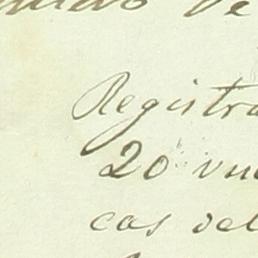 de
Registra
20 vue
cas del